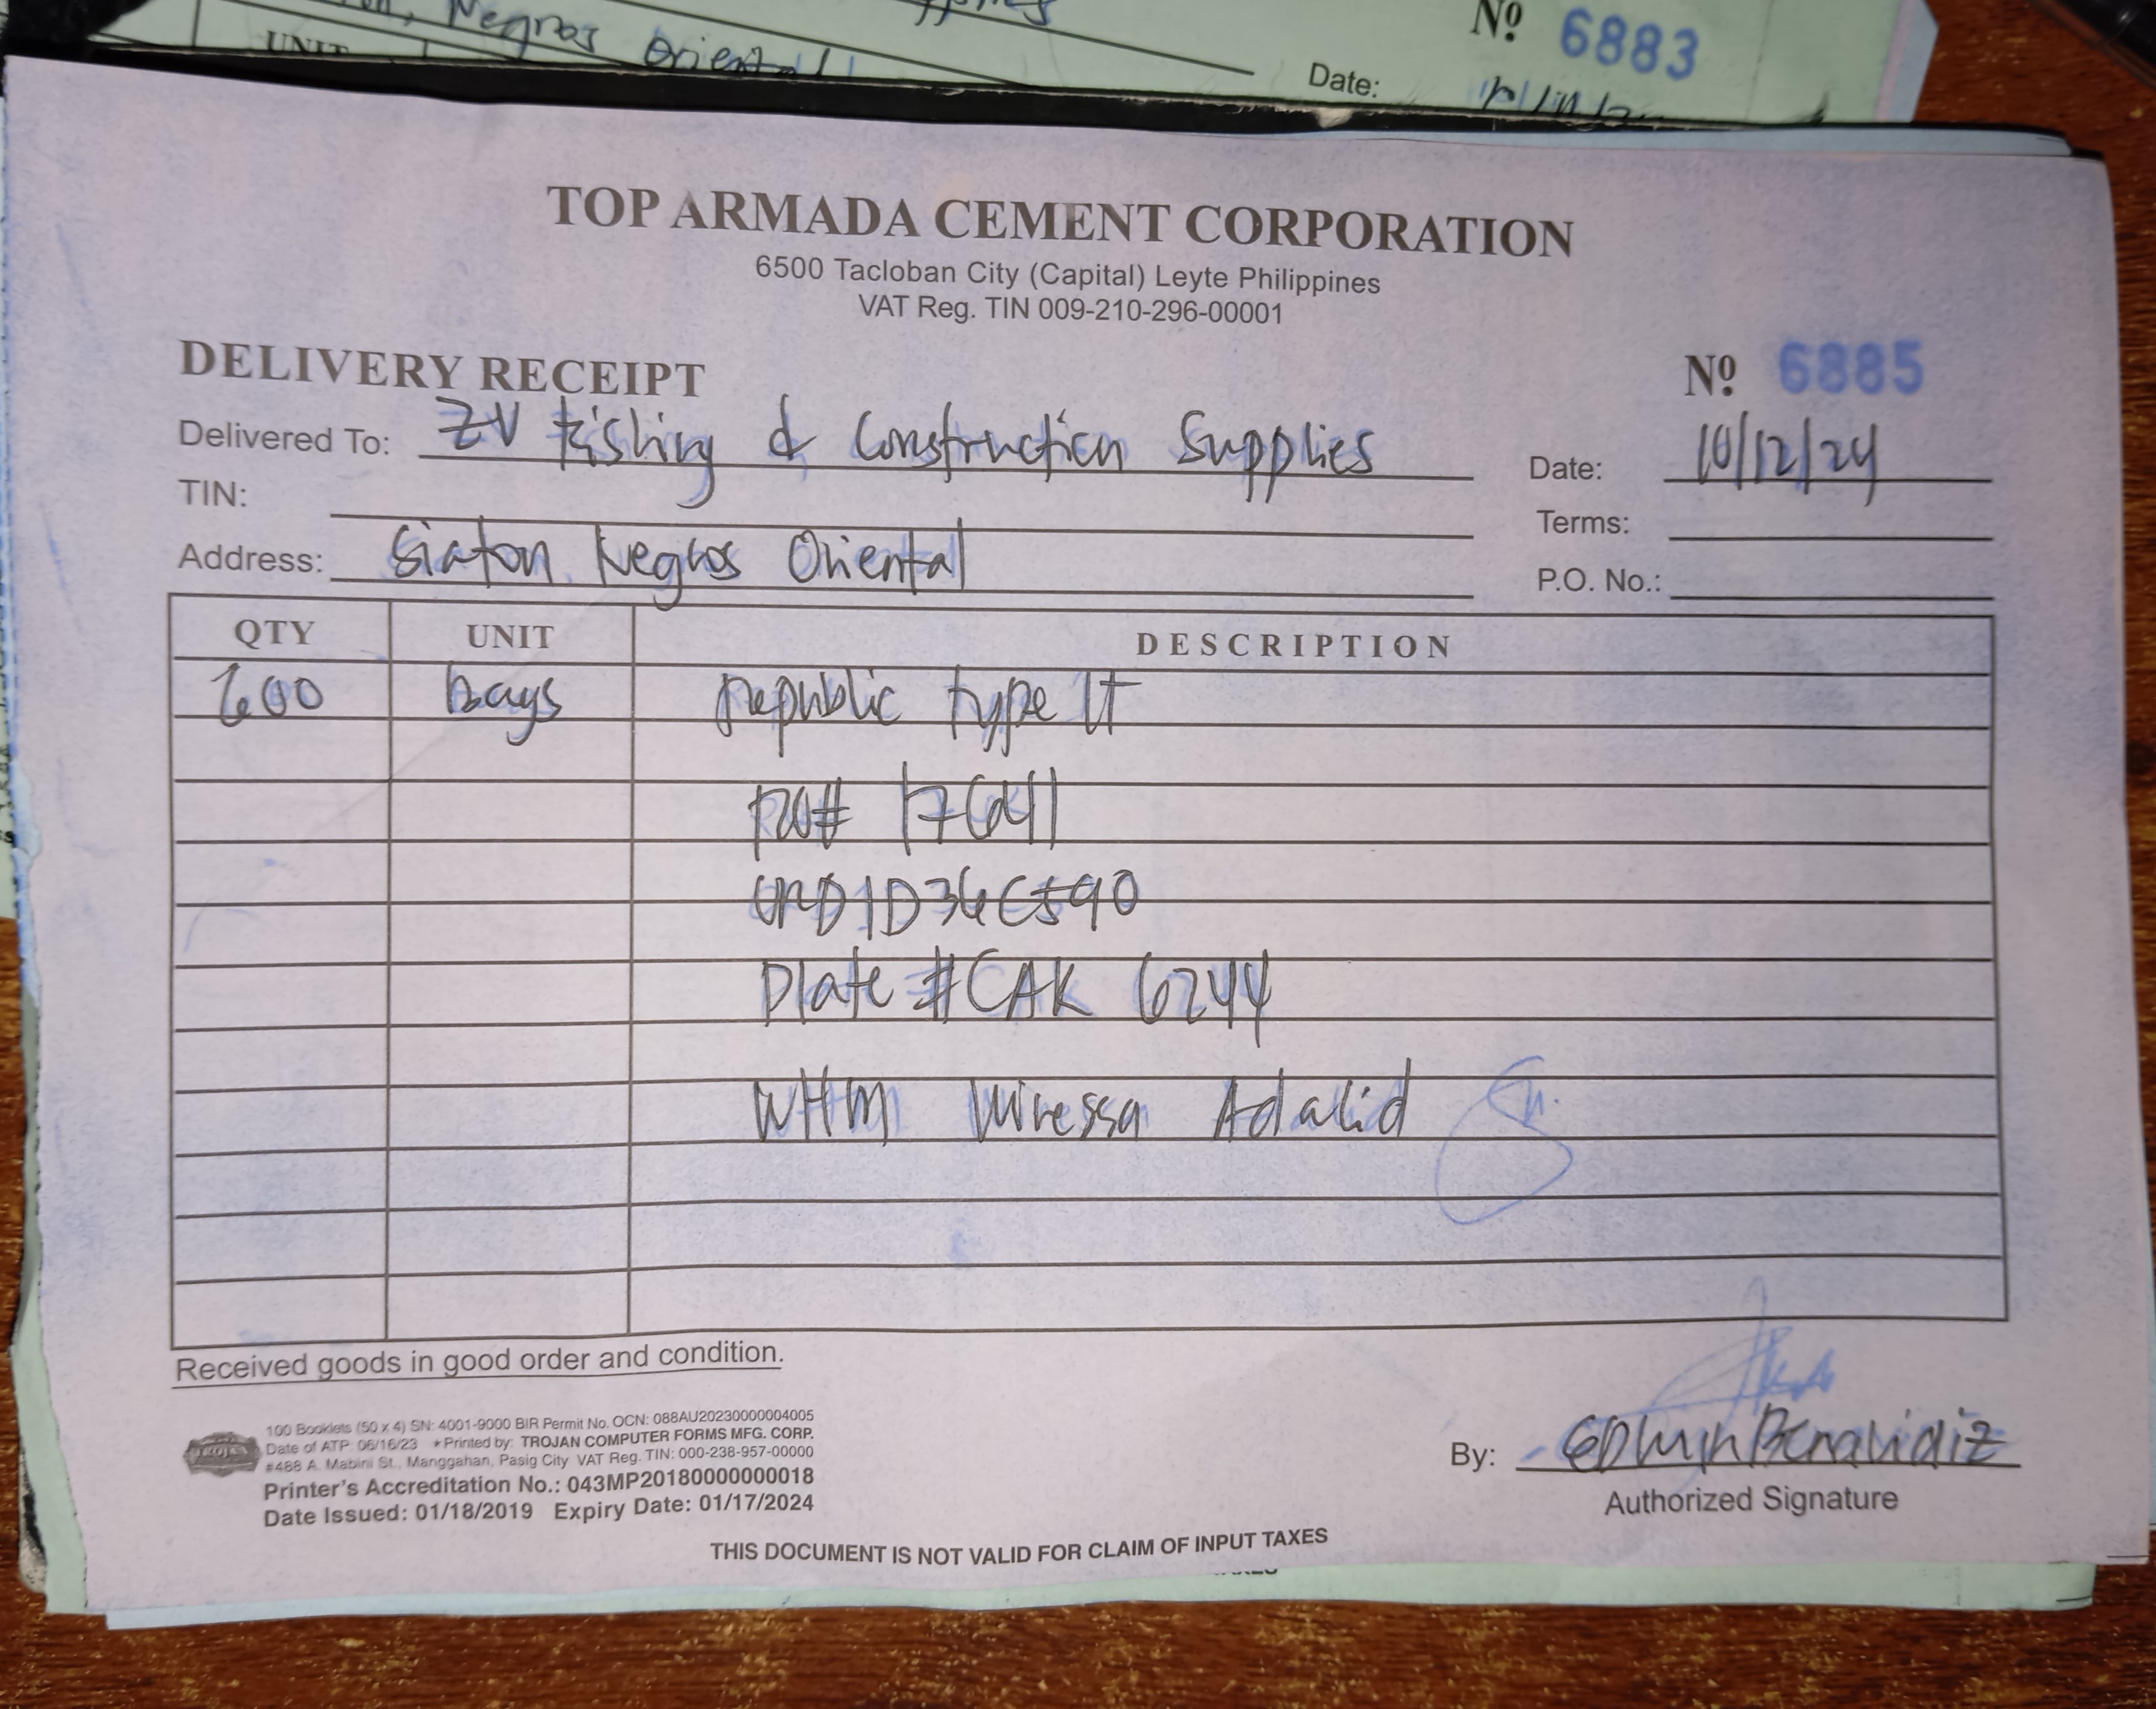 Negros Oriental
UNIT
Nº 6883
Date:
TOP ARMADA CEMENT CORPORATION
6500 Tacloban City (Capital) Leyte Philippines
VAT Reg. TIN 009-210-296-00001
DELIVERY RECEIPT
Nº 6885
Delivered To: ZV Fishing & Construction Supplies
Date: 10/12/24
TIN:
Terms:
Address: Siaton, Negros Oriental
P.O. No.:
QTY UNIT DESCRIPTION
600 bags Republic type 1T
17641
Plate # CAK 6244
WHM Adalid
Received goods in good order and condition.
100 Booklets (50 x 4) SN: 4001-9000 BIR Permit No. OCN: 088AU20230000004005
Date of ATP: 06/16/23 *Printed by: TROJAN COMPUTER FORMS MFG. CORP.
#488 A. Mabini St., Manggahan, Pasig City VAT Reg. TIN: 000-238-957-00000
Printer's Accreditation No.: 043MP20180000000018
Date Issued: 01/18/2019 Expiry Date: 01/17/2024
TROJAN
By: Edwin
Authorized Signature
THIS DOCUMENT IS NOT VALID FOR CLAIM OF INPUT TAXES